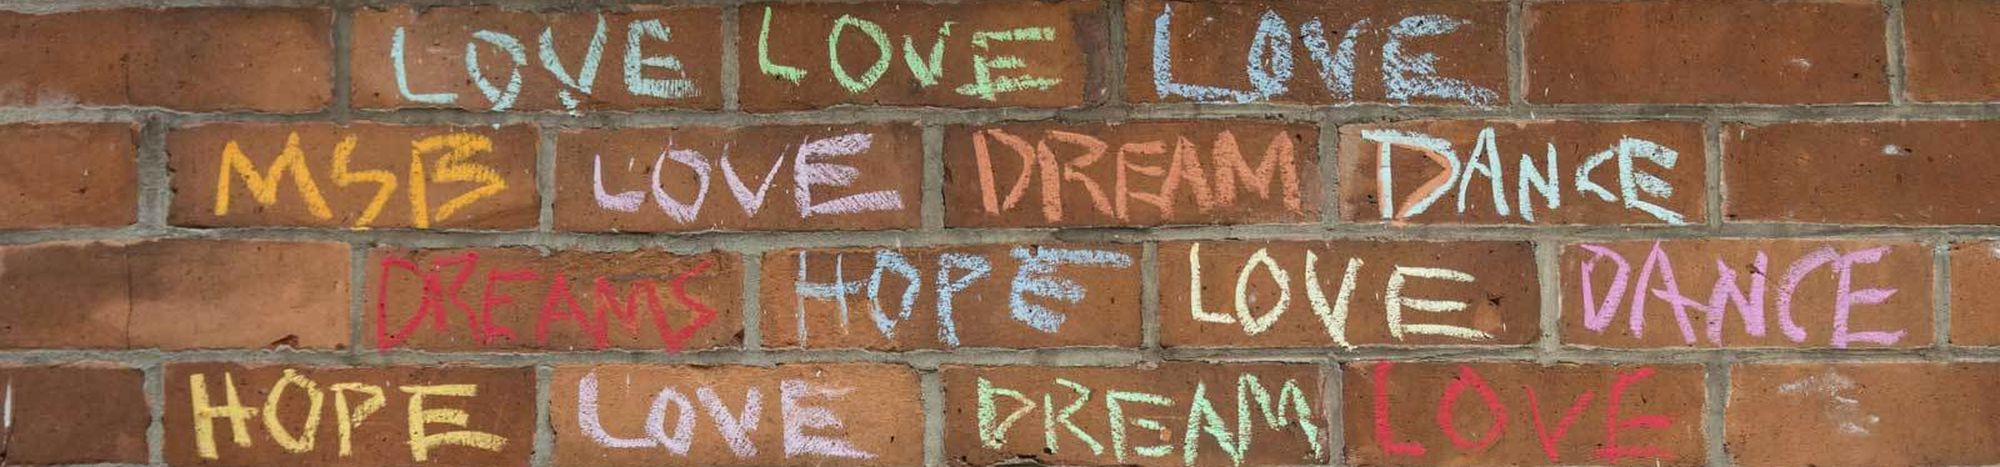 LOVE LOVE LOVE
MSB LOVE DREAM DANCE
DREAMS HOPE LOVE DANCE
HOPE LOVE DREAM LOVE